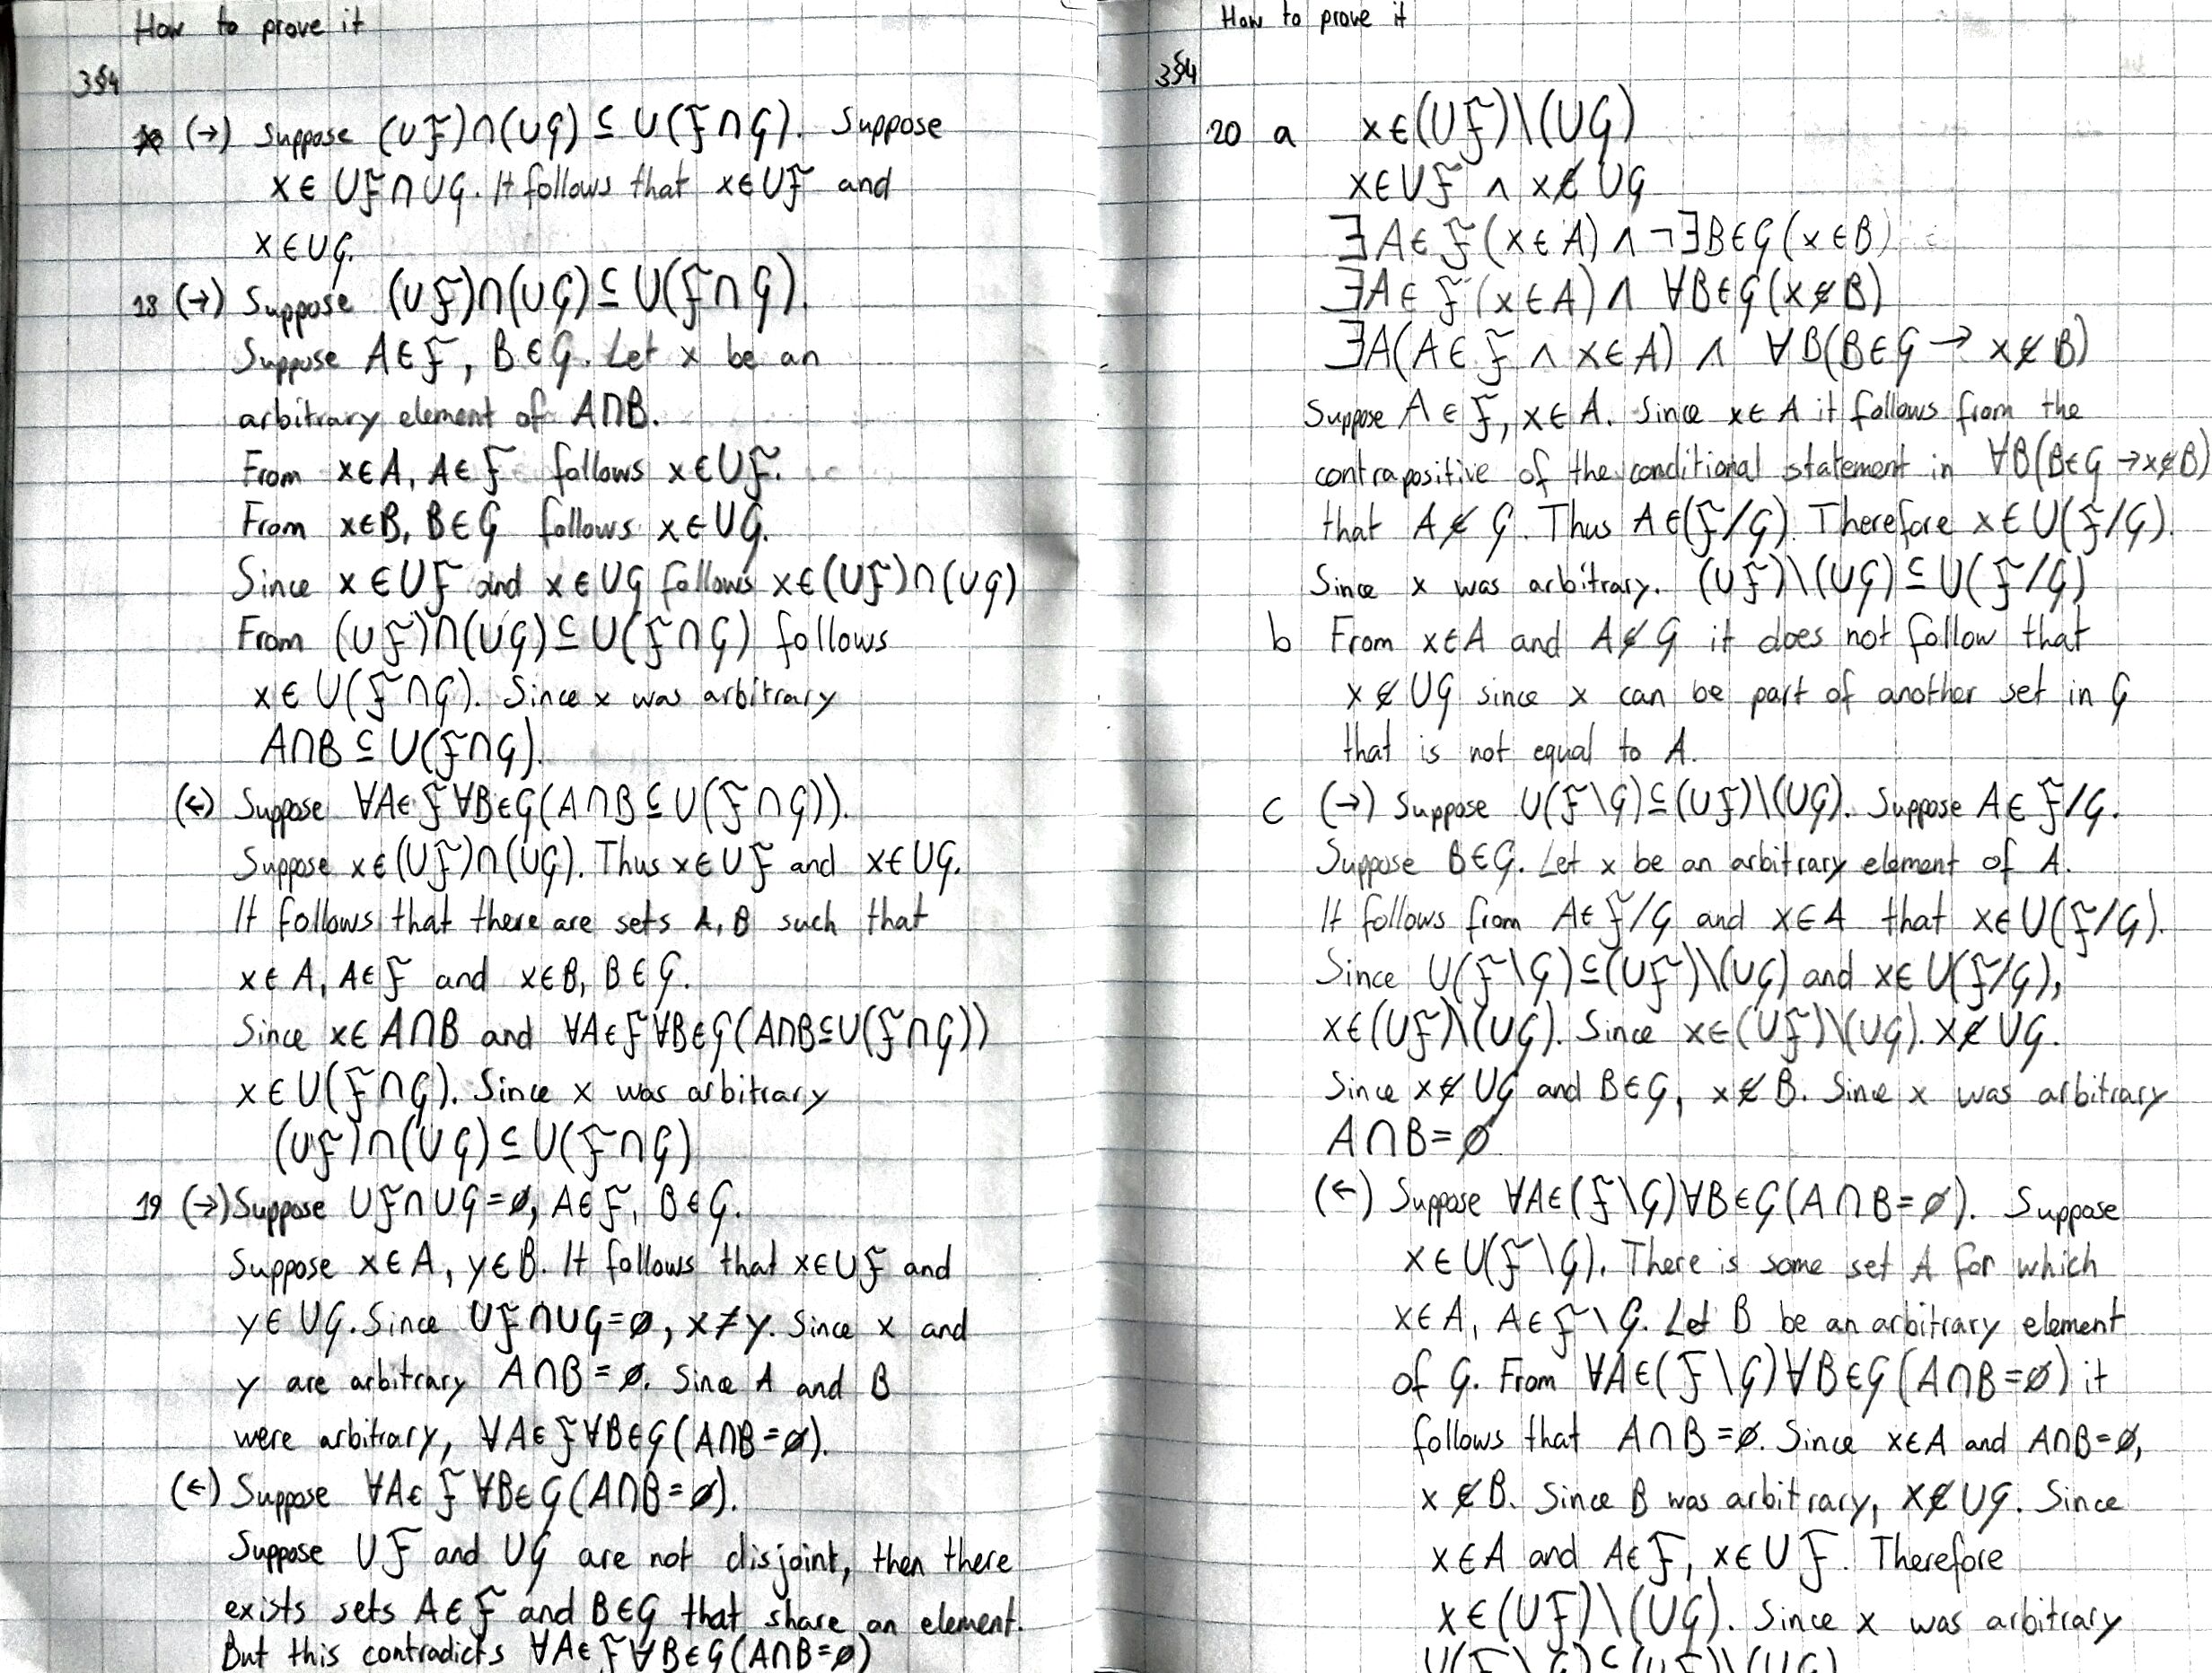 How to prove it
3§4
(→) Suppose (∪F)∩(∪G) ⊆ ∪(F∩G). Suppose
x ∈ ∪F∩∪G. It follows that x∈∪F and
x∈∪G.
18 (→) Suppose (∪F)∩(∪G)⊆∪(F∩G).
Suppose A∈F, B∈G. Let x be an
arbitrary element of A∩B.
From x∈A, A∈F follows x∈∪F.
From x∈B, B∈G follows x∈∪G.
Since x∈∪F and x∈∪G follows x∈(∪F)∩(∪G)
From (∪F)∩(∪G)⊆∪(F∩G) follows
x∈∪(F∩G). Since x was arbitrary
A∩B⊆∪(F∩G).
(←) Suppose ∀A∈F∀B∈G(A∩B⊆∪(F∩G)).
Suppose x∈(∪F)∩(∪G). Thus x∈∪F and x∈∪G.
It follows that there are sets A, B such that
x∈A, A∈F and x∈B, B∈G.
Since x∈A∩B and ∀A∈F∀B∈G(A∩B⊆∪(F∩G))
x∈∪(F∩G). Since x was arbitrary
(∪F)∩(∪G)⊆∪(F∩G)
19 (→) Suppose ∪F∩∪G=∅, A∈F, B∈G.
Suppose x∈A, y∈B. It follows that x∈∪F and
y∈∪G. Since ∪F∩∪G=∅, x≠y. Since x and
y are arbitrary A∩B=∅. Since A and B
were arbitrary, ∀A∈F∀B∈G(A∩B=∅).
(←) Suppose ∀A∈F∀B∈G(A∩B=∅).
Suppose ∪F and ∪G are not disjoint, then there
exists sets A∈F and B∈G that share an element.
But this contradicts ∀A∈F∀B∈G(A∩B=∅)
How to prove it
3§4
20 a x∈(∪F)\(∪G)
x∈∪F ∧ x∉∪G
∃A∈F(x∈A) ∧ ¬∃B∈G(x∈B)
∃A∈F(x∈A) ∧ ∀B∈G(x∉B)
∃A(A∈F ∧ x∈A) ∧ ∀B(B∈G → x∉B)
Suppose A∈F, x∈A. Since x∈A it follows from the
contrapositive of the conditional statement in ∀B(B∈G→x∉B)
that A∉G. Thus A∈(F/G). Therefore x∈∪(F/G).
Since x was arbitrary. (∪F)\(∪G)⊆∪(F/G)
b From x∈A and A∉G it does not follow that
x∉∪G since x can be part of another set in G
that is not equal to A.
c (→) Suppose ∪(F\G)⊆(∪F)\(∪G). Suppose A∈F/G.
Suppose B∈G. Let x be an arbitrary element of A.
It follows from A∈F/G and x∈A that x∈∪(F/G).
Since ∪(F\G)⊆(∪F)\(∪G) and x∈∪(F/G),
x∈(∪F)\(∪G). Since x∈(∪F)\(∪G). x∉∪G.
Since x∉∪G and B∈G, x∉B. Since x was arbitrary
A∩B=∅
(←) Suppose ∀A∈(F\G)∀B∈G(A∩B=∅). Suppose
x∈∪(F\G). There is some set A for which
x∈A, A∈F\G. Let B be an arbitrary element
of G. From ∀A∈(F\G)∀B∈G(A∩B=∅) it
follows that A∩B=∅. Since x∈A and A∩B=∅,
x∉B. Since B was arbitrary, x∉∪G. Since
x∈A and A∈F, x∈∪F. Therefore
x∈(∪F)\(∪G). Since x was arbitrary
∪(F\G)⊆(∪F)\(∪G)